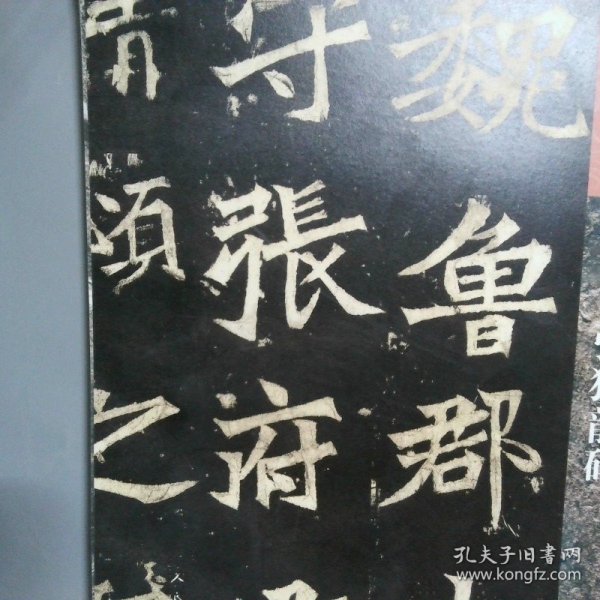 魏魯郡
守張府
清頌之
孔夫子旧書网
www.kongfz.com